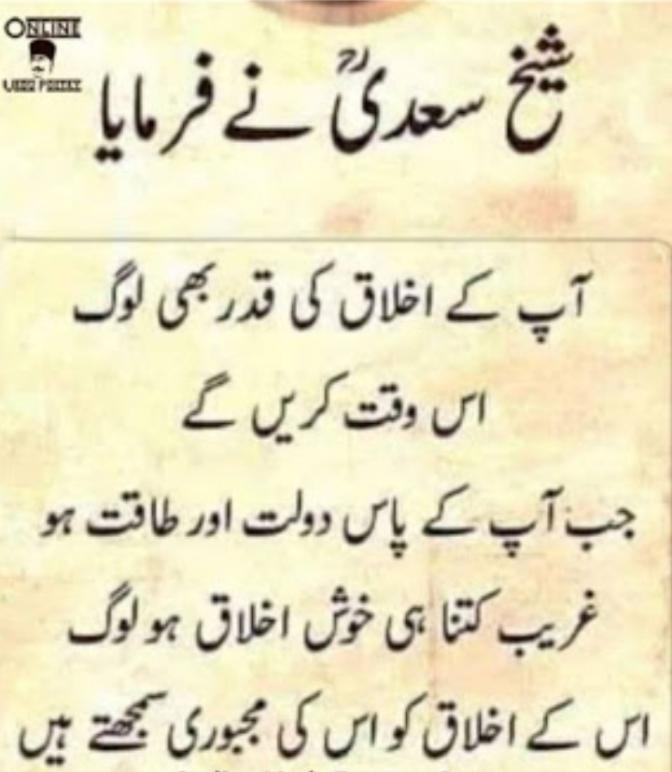 ONLINE
URDU PORTAL
شیخ سعدیؒ نے فرمایا
آپ کے اخلاق کی قدر بھی لوگ
اس وقت کریں گے
جب آپ کے پاس دولت اور طاقت ہو
غریب کتنا ہی خوش اخلاق ہو لوگ
اس کے اخلاق کو اس کی مجبوری سمجھتے ہیں